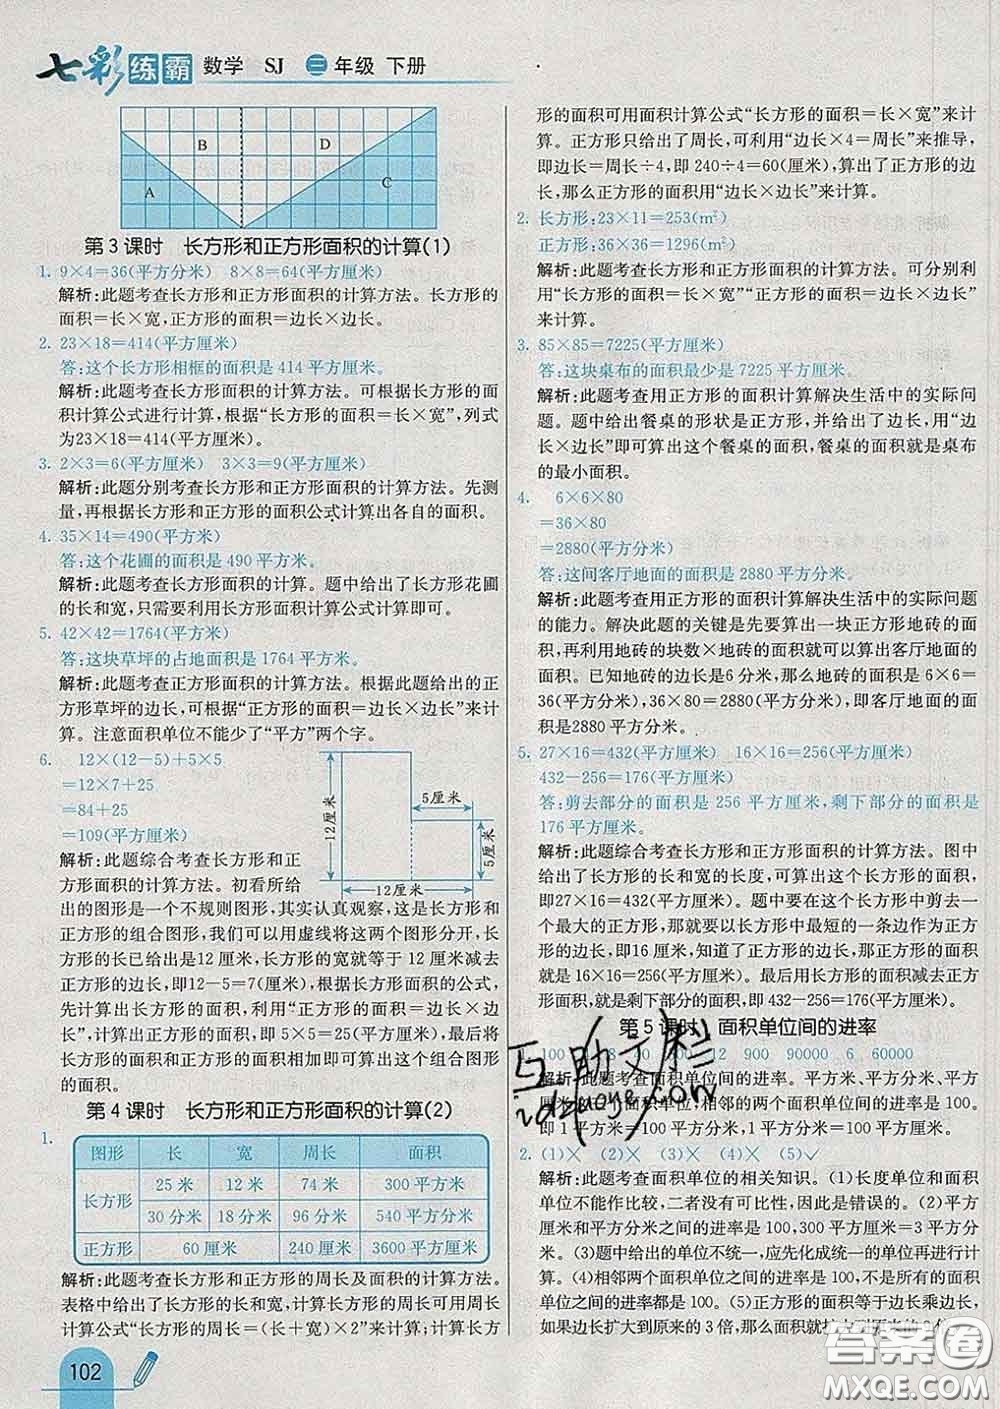 七彩练霸 数学 SJ 三年级 下册
B
D
A
C
第3课时 长方形和正方形面积的计算(1)
1. 9×4=36(平方分米) 8×8=64(平方厘米)
解析:此题考查长方形和正方形面积的计算方法。长方形的
面积=长×宽,正方形的面积=边长×边长。
2. 23×18=414(平方厘米)
答:这个长方形相框的面积是 414 平方厘米。
解析:此题考查长方形面积的计算方法。可根据长方形的面
积计算公式进行计算,根据“长方形的面积=长×宽”,列式
为23×18=414(平方厘米)。
3. 2×3=6(平方厘米) 3×3=9(平方厘米)
解析:此题分别考查长方形和正方形面积的计算方法。先测
量,再根据长方形和正方形的面积公式计算出各自的面积。
4. 35×14=490(平方米)
答:这个花圃的面积是 490 平方米。
解析:此题考查长方形面积的计算。题中给出了长方形花圃
的长和宽,只需要利用长方形面积计算公式计算即可。
5. 42×42=1764(平方米)
答:这块草坪的占地面积是 1764 平方米。
解析:此题考查正方形面积的计算方法。根据此题给出的正
方形草坪的边长,可根据“正方形的面积=边长×边长”来计
算。注意面积单位不能少了“平方”两个字。
6. 12×(12-5)+5×5
=12×7+25
=84+25
=109(平方厘米)
12厘米
5厘米
5厘米
12厘米
解析:此题综合考查长方形和正
方形面积的计算方法。初看所给
出的图形是一个不规则图形,其实认真观察,这是长方形和
正方形的组合图形,我们可以用虚线将这两个图形分开,长方
形的长已给出是12 厘米,长方形的宽就等于12厘米减去
正方形的边长,即12-5=7(厘米),根据长方形面积的公式,
先计算出长方形的面积,利用“正方形的面积=边长×边
长”,计算出正方形的面积,即 5×5=25(平方厘米),最后将
长方形的面积和正方形的面积相加即可算出这个组合图形
的面积。
第4课时 长方形和正方形面积的计算(2)
1.
图形 长 宽 周长 面积
长方形 25 米 12 米 74 米 300 平方米
30 分米 18 分米 96 分米 540 平方分米
正方形 60 厘米 240 厘米 3600 平方厘米
解析:此题考查长方形和正方形的周长及面积的计算方法。
表格中给出了长方形的长和宽,计算长方形的周长可用周长
计算公式“长方形的周长=(长+宽)×2”来计算;计算长方
102
形的面积可用面积计算公式“长方形的面积=长×宽”来计
算。正方形只给出了周长,可利用“边长×4=周长”来推导,
即边长=周长÷4,即 240÷4=60(厘米),算出了正方形的边
长,那么正方形的面积用“边长×边长”来计算。
2. 长方形:23×11=253(m²)
正方形:36×36=1296(m²)
解析:此题考查长方形和正方形面积的计算。可分别利
用“长方形的面积=长×宽”“正方形的面积=边长×边长”
来计算。
3. 85×85=7225(平方厘米)
答:这块桌布的面积最少是 7225 平方厘米。
解析:此题考查用正方形的面积计算解决生活中的实际问
题。题中给出餐桌的形状是正方形,并给出了边长,用“边
长×边长”即可算出这个餐桌的面积,餐桌的面积就是桌布
的最小面积。
4. 6×6×80
=36×80
=2880(平方分米)
答:这间客厅地面的面积是 2880 平方分米。
解析:此题考查用正方形的面积计算解决生活中的实际问题
的能力。解决此题的关键是先要算出一块正方形地砖的面
积,再利用地砖的块数×地砖的面积就可以算出客厅地面的
面积。已知地砖的边长是6 分米,那么地砖的面积是 6×6=
36(平方分米),36×80=2880(平方分米),即客厅地面的面
积是2880 平方分米。
5. 27×16=432(平方厘米) 16×16=256(平方厘米)
432-256=176(平方厘米)
答:剪去部分的面积是 256 平方厘米,剩下部分的面积是
176 平方厘米。
解析:此题综合考查长方形和正方形面积的计算方法。图中
给出了长方形的长和宽的长度,可直接算出长方形的面积,
即27×16=432(平方厘米)。题中要在这个长方形中剪去一
个最大的正方形,那么就要以长方形中最短的一条边作为正方
形的边长,即16 厘米,知道了正方形的边长,那正方形的面积
就是 16×16=256(平方厘米)。最后用长方形的面积减去正方
形的面积,就是剩下部分的面积,即 432-256=176(平方厘米)。
第5课时 面积单位间的进率
1. 100 12 900 90000 6 60000
解析:此题考查面积单位间的进率。平方米、平方分米、平方
厘米是面积单位,相邻的两个面积单位间的进率是 100。
即 1 平方米=100 平方分米,1 平方分米=100 平方厘米。
2. (1)× (2)× (3)× (4)× (5)✓
解析:此题考查面积单位的相关知识。(1)长度单位和面积
单位不能作比较,二者没有可比性,因此是错误的。(2)平方
厘米和平方分米之间的进率是 100,300 平方厘米=3平方分
米。(3)题中给出的单位不统一,应先化成统一的单位再进行计
算。(4)相邻两个面积单位之间的进率是 100,不是所有的面积
单位之间的进率都是 100。(5)正方形的面积等于边长乘边长,
如果边长扩大到原来的 3 倍,那么面积就扩大到原来的 9 倍。
互助文栏
答案圈
MXQE.COM